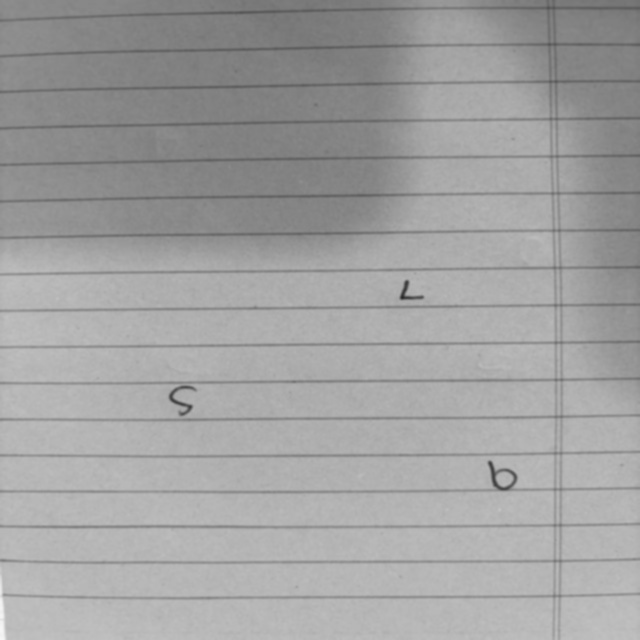 L
S
b